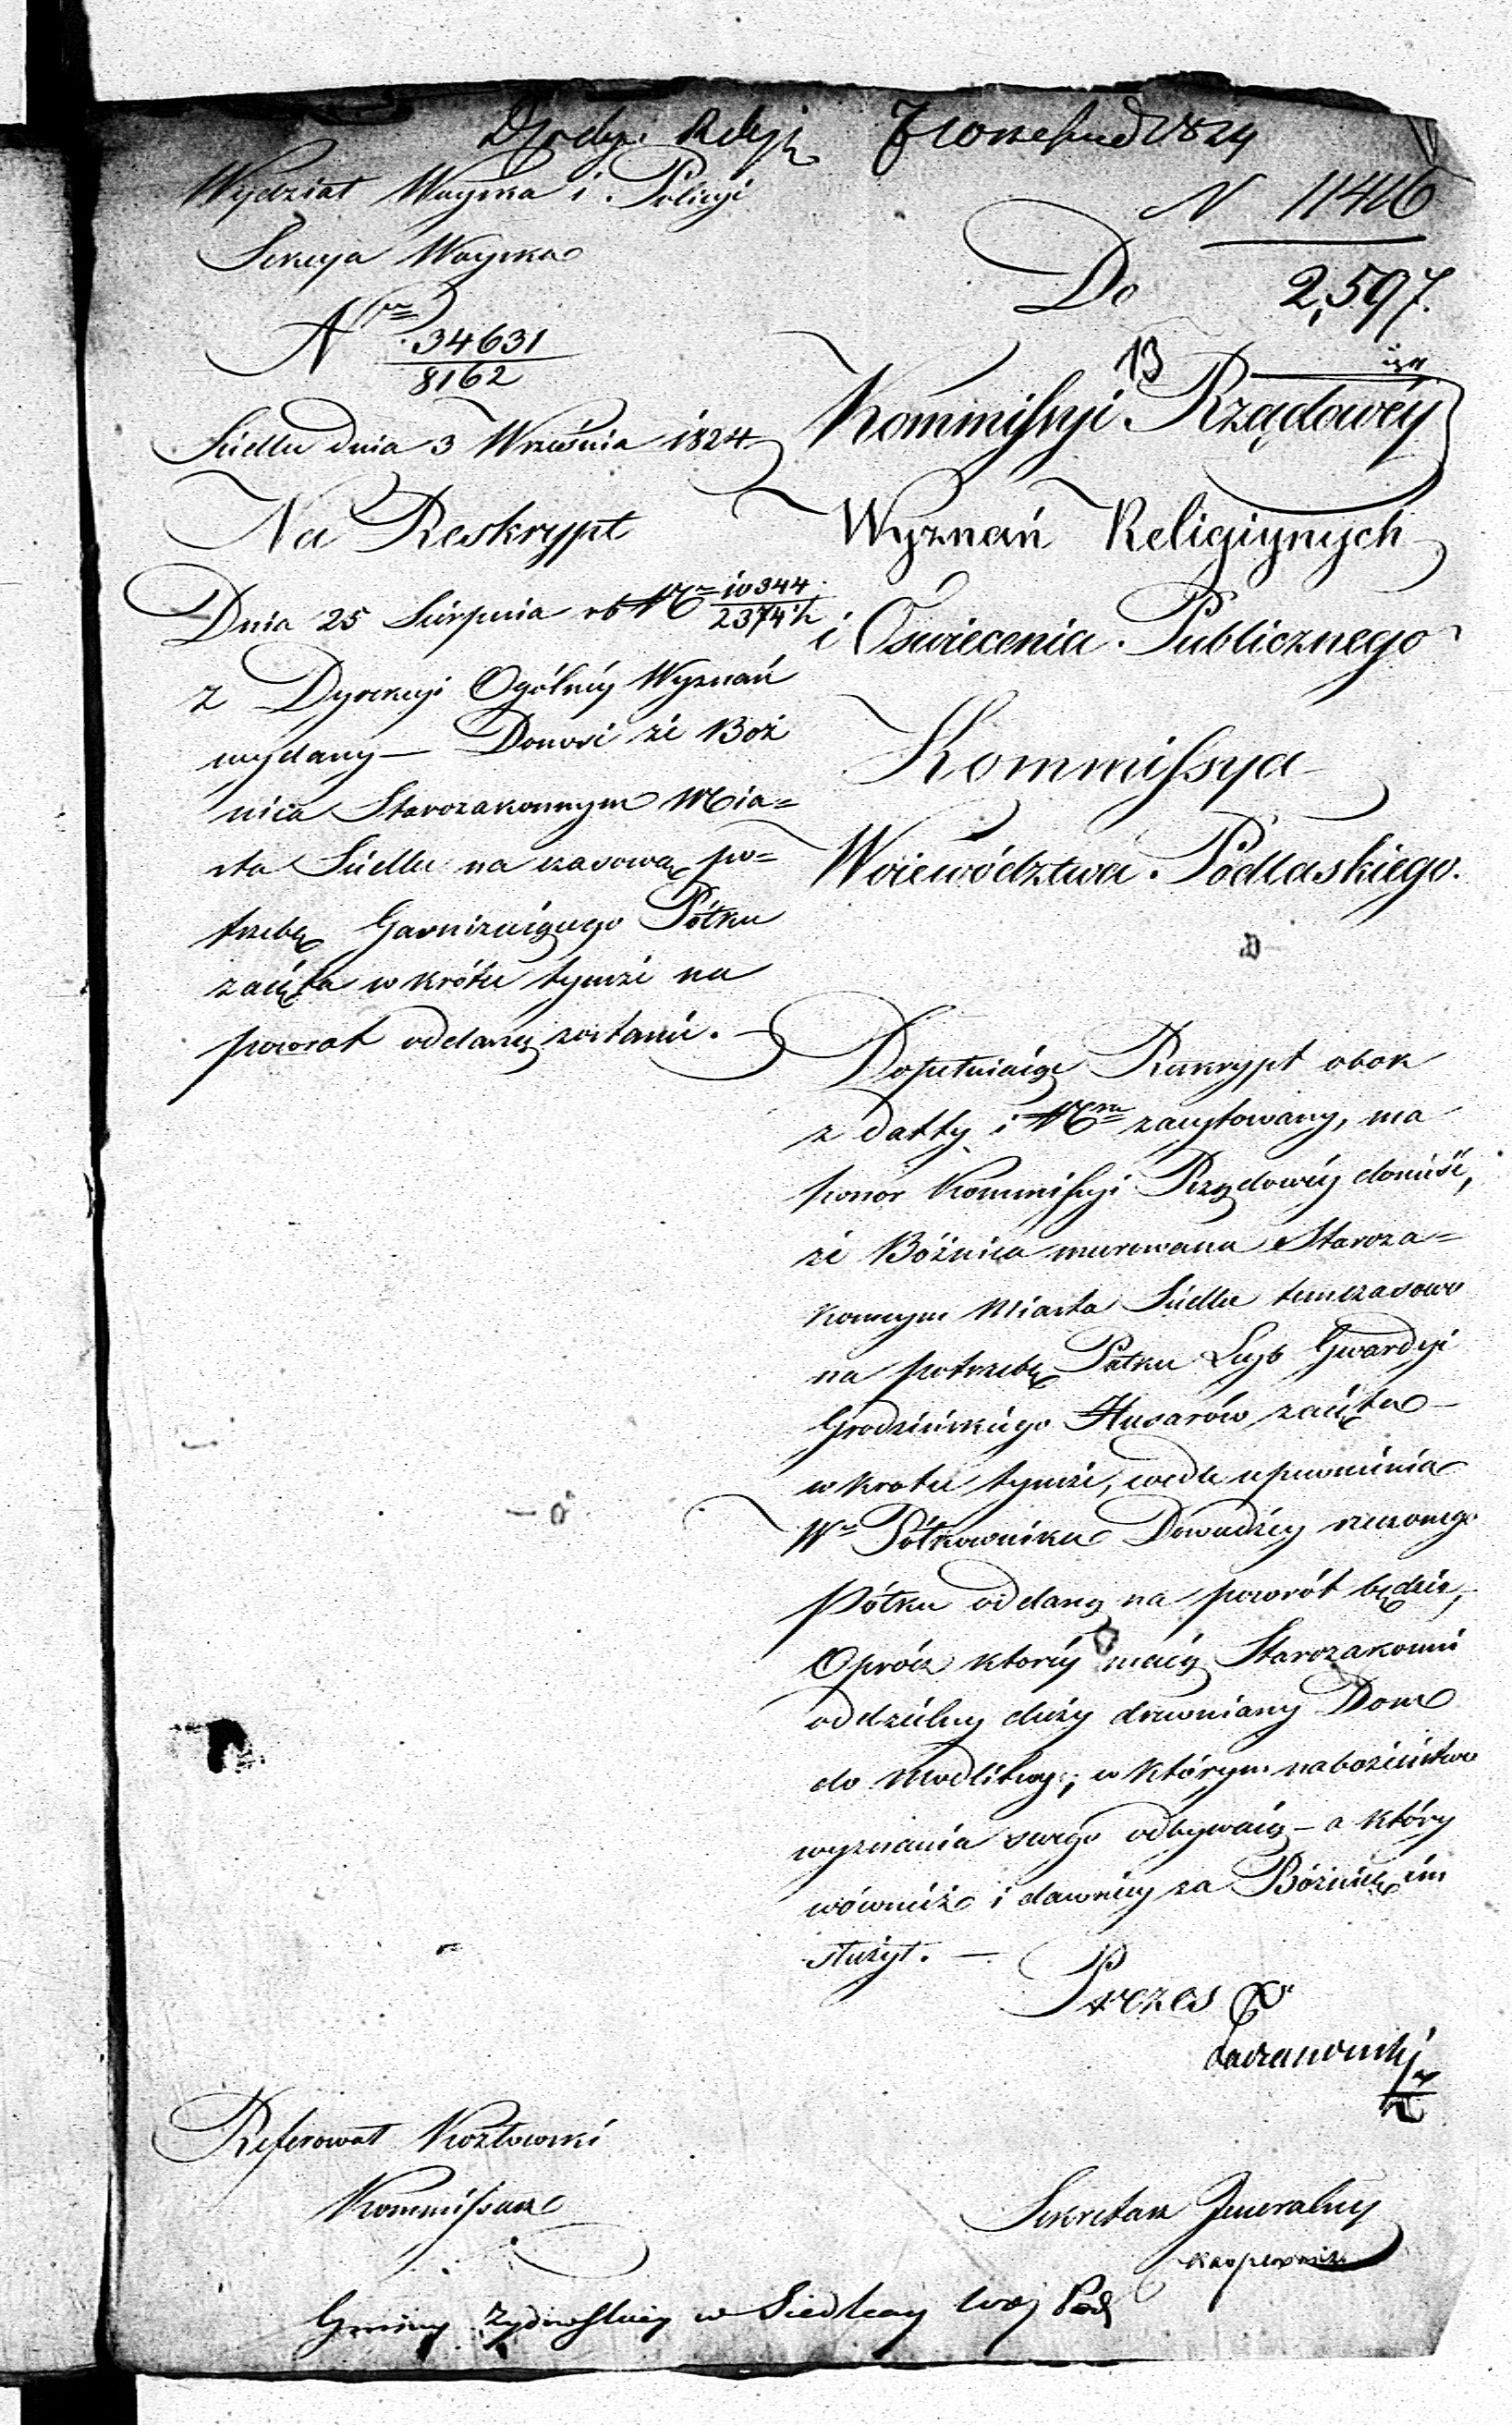 Wydział Woyska i Policyi
Sekcya Woyska
Nro 34631
8162
Siedlce dnia 3 Września 1824
Na Reskrypt
Dnia 25 Sierpnia rb Nro 10344
2374 1/2
z Dyrekcyi Ogólnéy Wyznań
wydany — Donosi że Boż
nica Starozakonnym Mia=
sta Siedlec na czasową po=
trzebę Garnizuiącego Półku
zaięta w krótce tymże na
powrot oddaną zostanie. —
7 Wrzesnia 1824
N 11416
2,597.
Do
Kommissyi Rządowéy
Wyznań Religiynych
i Oświecenia Publicznego
Kommissya
Woiewództwa Podlaskiego.
Dopełniaiąc Reskrypt obok
z datty i Nru zacytowany, ma
honor Kommissyi Rządowéy donieść,
że Bóżnica murowana Staroza=
konnym Miasta Siedlec temczasowo
na potrzebę Półku Leyb Gwardyi
Grodzieńskiego Husarów zaięta —
w krotce tymże, wedle upewnienia
Wo Półkownika Dowódzcy rzeczonego
Półku oddaną na powrót będzie,
Oprócz któréy maią Starozakonni
oddzielny duży drewniany Dom
do Modlitwy, w którym nabożeństwo
wyznania swego odbywaią — a który
również i dawniéy za Bóżnicę im
służył. —
Prezes
Sekretarz Jeneralny
Referował Kozłowski
Kommissarz
Gminy Żydowskiey w Siedlcach Woj Podl